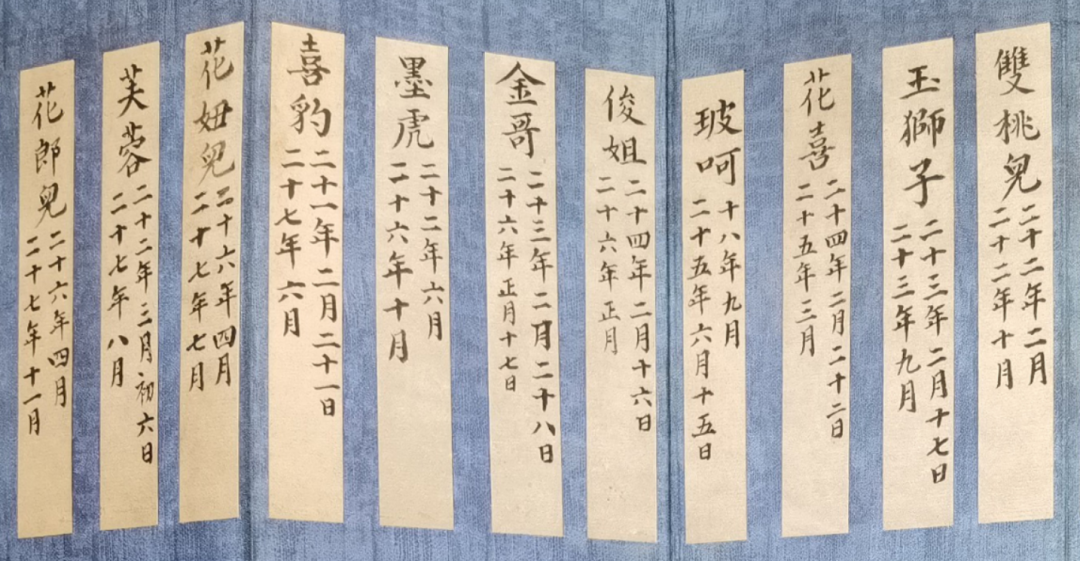 雙桃兒
二十二年二月
二十二年十月
玉獅子
二十三年二月十七日
二十三年九月
花喜
二十四年二月二十二日
二十五年三月
玻呵
十八年九月
二十五年六月十五日
俊姐
二十四年二月十六日
二十六年正月
金哥
二十三年二月二十八日
二十六年正月十七日
墨虎
二十二年六月
二十六年十月
喜豹
二十一年二月二十一日
二十七年六月
花妞兒
二十六年四月
二十七年七月
芙蓉
二十二年三月初六日
二十七年八月
花郎兒
二十六年四月
二十七年十一月